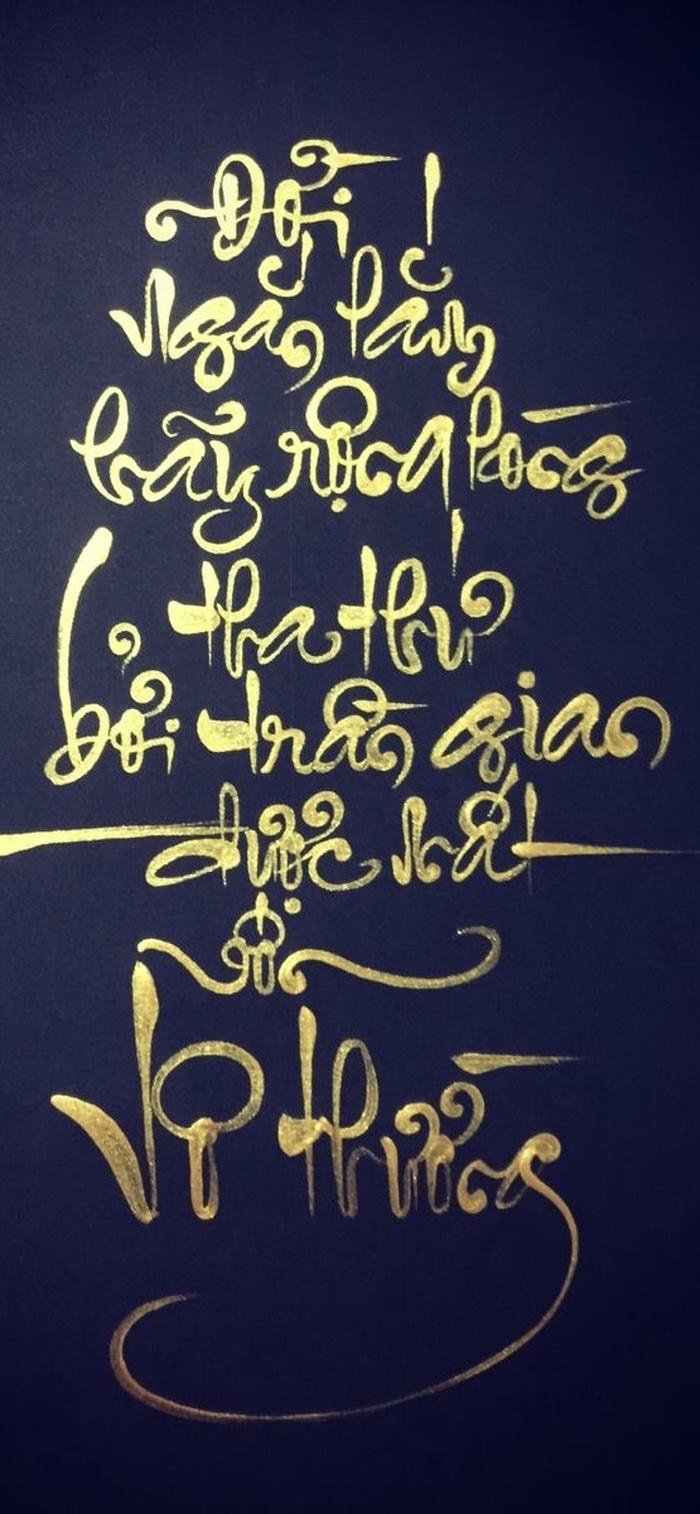 Đời !
Ngắn lắm
hãy rộng lòng
tha thứ
bởi trần gian
được mất
vốn
Vô thường